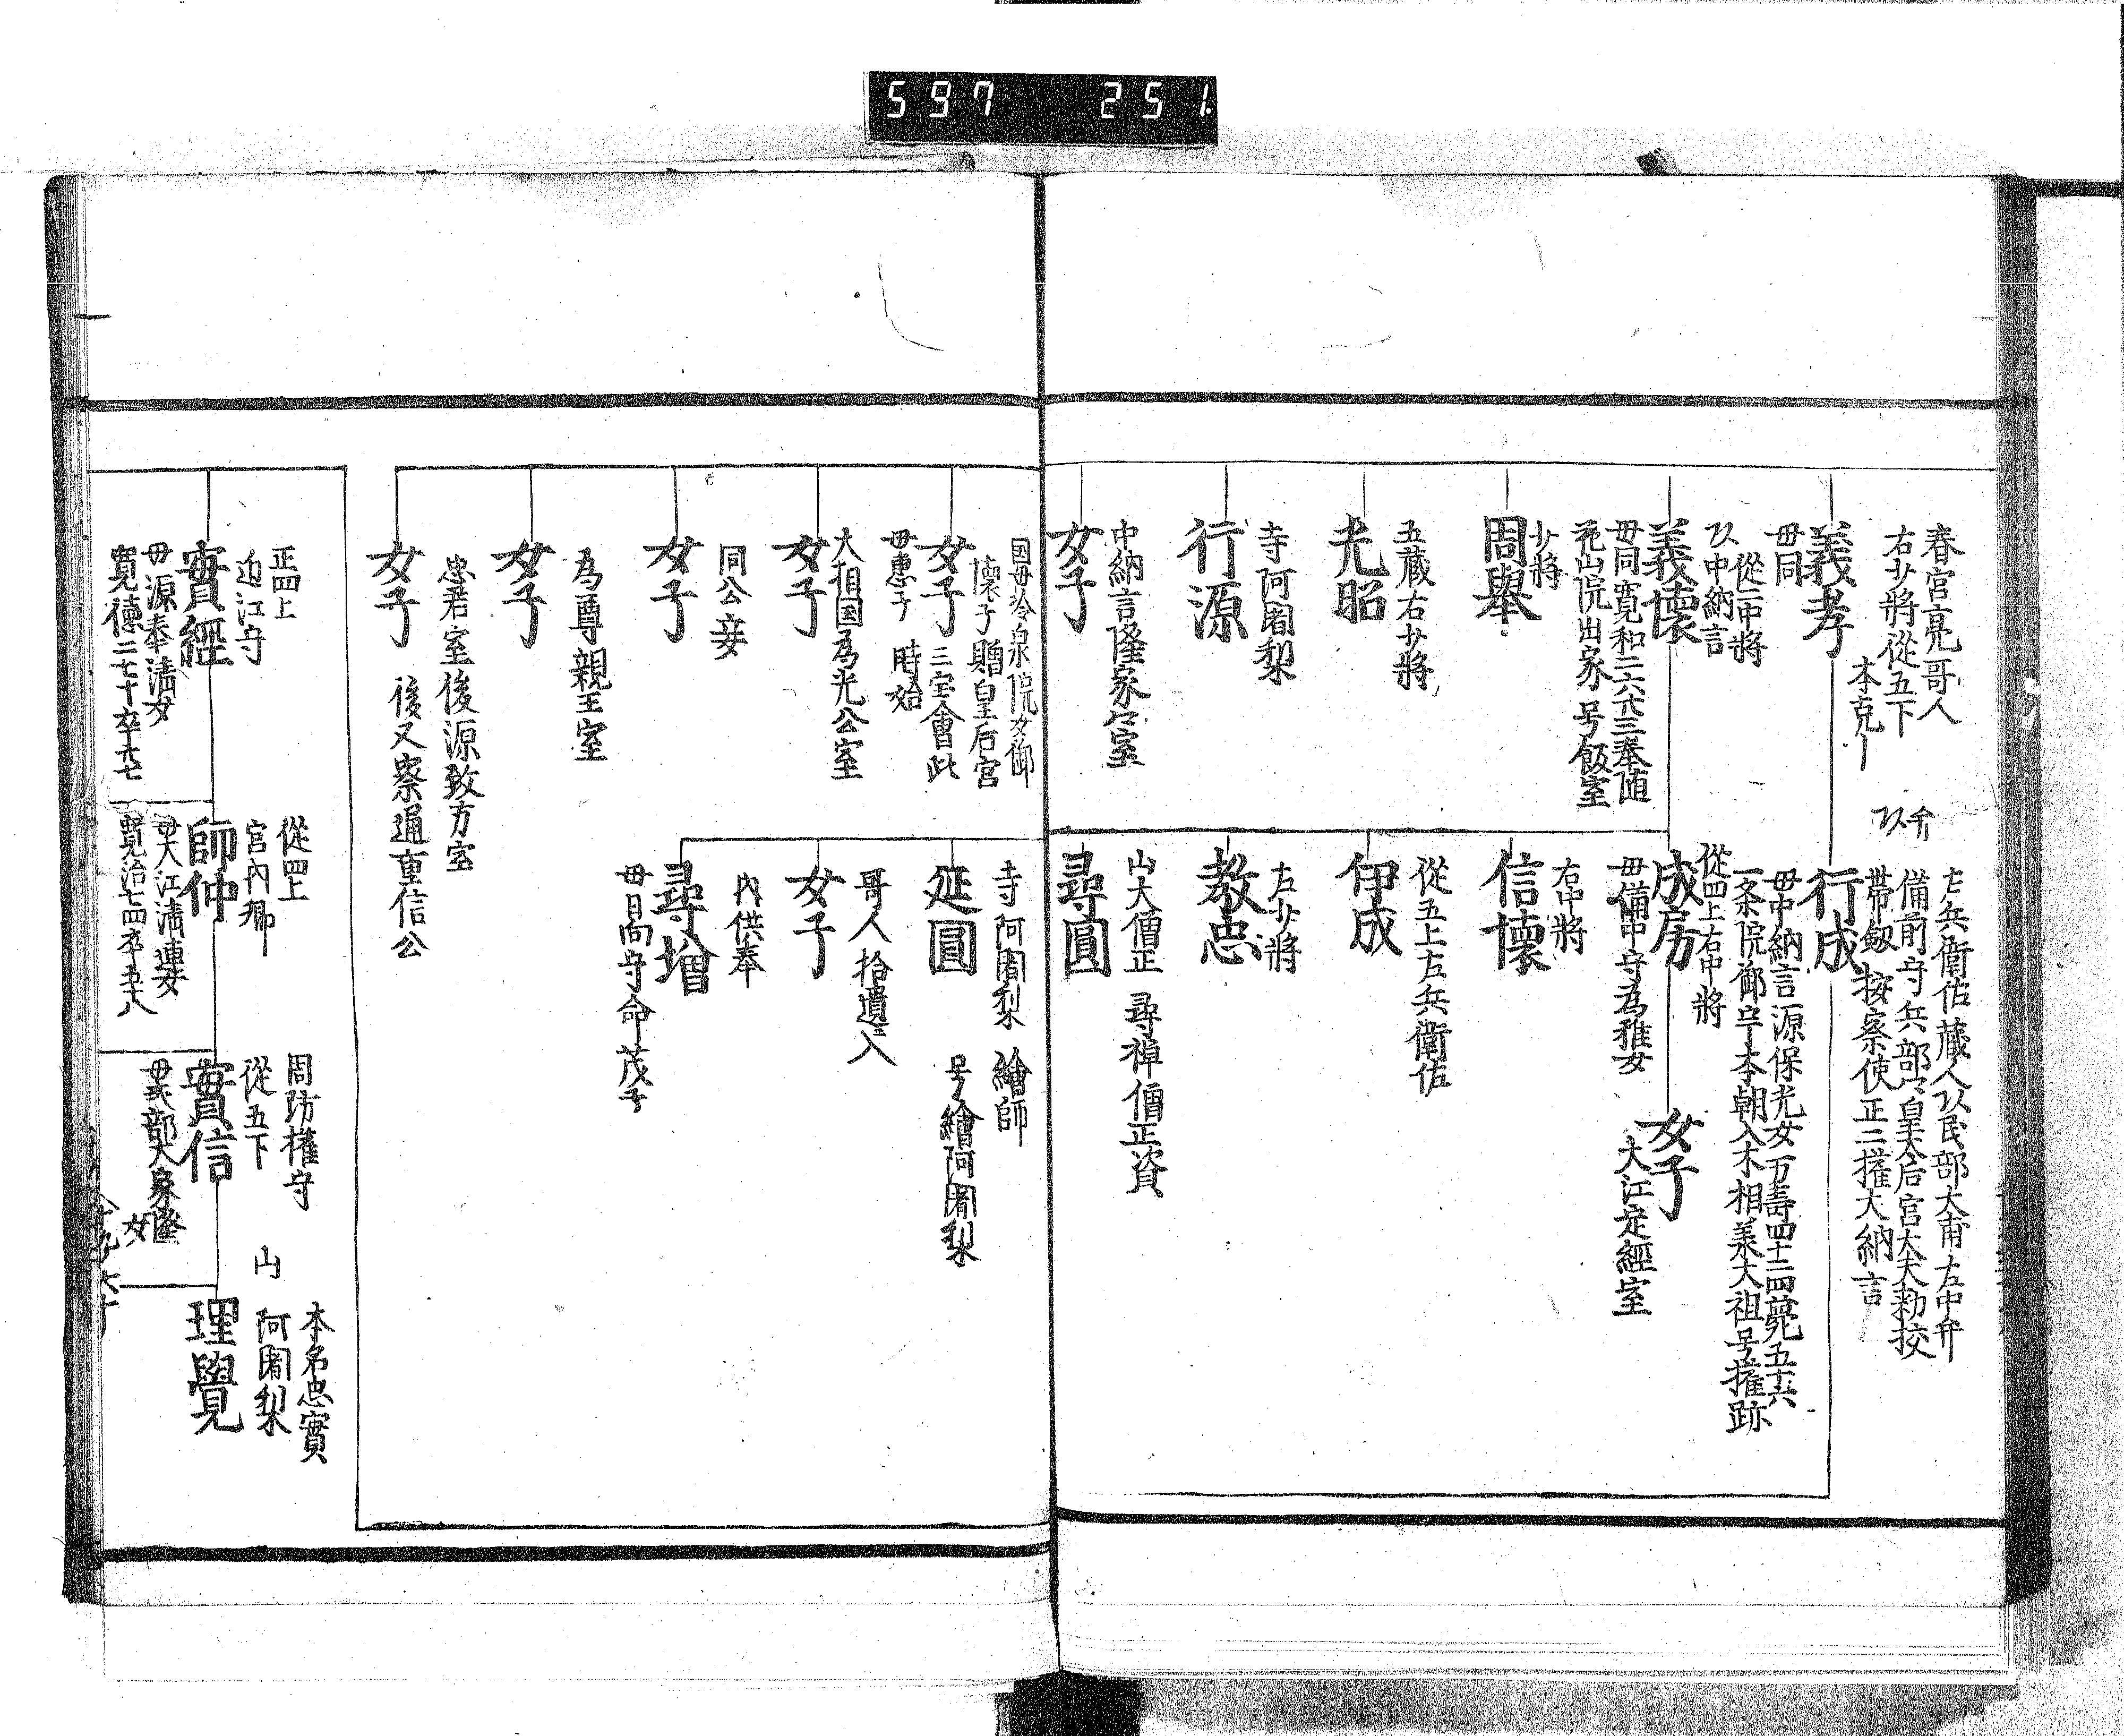 597 251
春宮亮哥人
右少將從五下
本克
義孝
母同
從二中將
权中納言
義懷
母同寬和二六廿三奉随
花山院出家号飯室
少將
周擧
五蔵右少將
光昭
寺阿闍梨
行源
中納言隆家々室
女子
左兵衛佐蔵人权民部大甫左中弁
備前守兵部々皇太后宮大夫勅授
帶劔按察使正二權大納言
行成
母中納言源保光女万壽四十二四薨五十六
一条院御宇本朝入木相美大祖号權跡
從四上右中將
成房
母備中守為雅女
女子
大江定經室
右中將
信懷
從五上左兵衛佐
伊成
左少將
教忠
山大僧正 尋禅僧正資
尋圓
国母冷泉院女御
懷子贈皇后宮
女子
三宝會此
母惠子 時始
大相国為光公室
女子
同公妾
女子
為尊親王室
女子
忠君室後源致方室
女子
後又嫁通重信公
寺阿闍梨 繪師
延圓
号繪阿闍梨
哥人拾遺入
女子
內供奉
尋增
母日向守命茂子
正四上
近江守
實經
母源奉清女
寬德二七十卒
從四上
宮內卿
師仲
母大江清通女
寬治七四卒
周防權守
從五下
實信
女
本名忠實
山
阿闍梨
理覺